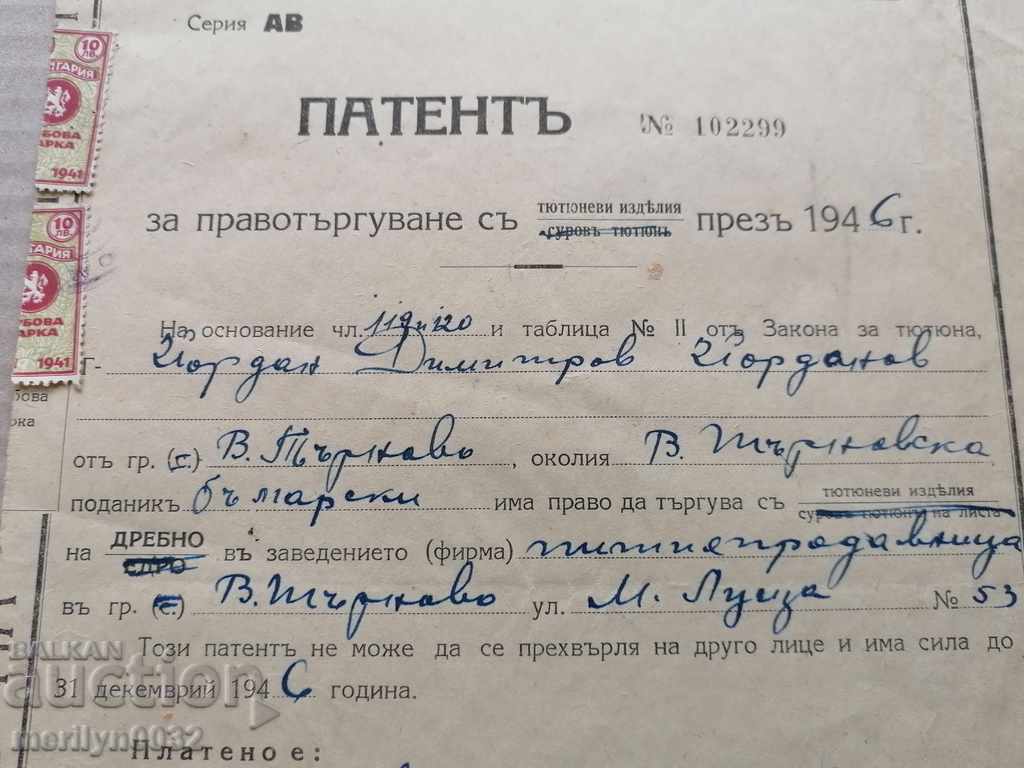 Серия АВ
10 ЛВ.
ЛГАРИЯ
БОВА
АРКА
1941
ПАТЕНТЪ № 102299
10 ЛВ.
ГАРИЯ
РБОВА
АРКА
1941
за правотъргуване съ тютюневи издѣлия суровъ тютюнь презъ 1946 г.
На основание чл. 119 и 120 и таблица № II отъ Закона за тютюна,
Г- Йордан Димитров Йорданов
бова
рка
отъ гр. (с.) В. Търново, околия В. Търновска
поданикъ български има право да търгува съ тютюневи издѣлия суровъ тютюнъ на листа
на ДРЕБНО ЕДРО въ заведението (фирма) тютюнопродавница
въ гр. (с.) В. Търново ул. М. Луиза № 53
Този патентъ не може да се прехвърля на друго лице и има сила до
31 декемврий 1946 година.
Платено е:
BALKAN
auction
merilyn0032